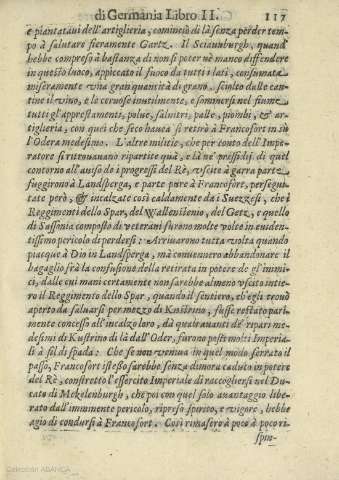 di Germania Libro II. 117
e piantataui dell'artiglieria, cominciò di là senza perder tem-
po à salutare fieramente Gartz. Il Sciaunburgh, quand'
hebbe compreso à bastanza di non si poter nè manco diffendere
in questo luoco, appiccato il fuoco da tutti i lati, consumata
miseramente vna gran quantità di grano, sciolto dalle can-
tine il vino, e la ceruosa inutilmente, e sommersi nel fiume
tutti gl'apprestamenti, polue, salnitri, palle, piombi, & ar-
tiglieria, con quei che seco hauea si retirò à Francofort in sù
l'Odera medesimo. L'altre militie, che per conto dell'Impe-
ratore si ritrouauano ripartite quà, e là ne' pressidij di quel
contorno all'auiso de i progressi del Rè, vscite à garra parte
fuggirono à Landsperga, e parte pure à Francofort, persegui-
tate però, & incalzate così caldamente da i Suezzesi, che i
Reggimenti dello Spar, del Wallenstenio, del Getz, e quello
di Sassonia composto di veterani furono molte volte in euiden-
tissimo pericolo di perdersi: Arriuarono tutta volta quando
piacque à Dio in Landsperga, mà conuennero abbandonare il
bagaglio frà la confusione della retirata in potere de gl'inimi-
ci, dalle cui mani certamente non sarebbe almeno vscito intie-
ro il Reggimento dello Spar, quando il sentiero, ch'egli trouò
aperto da saluarsi per mezzo di Kustrino, fusse restato pari-
mente concesso all'incalzo loro, dà quai auanti de' ripari me-
desimi di Kustrino di là dall'Oder, furono posti molti Imperia-
li à fil di spada. Che se non veniua in quel modo serrato il
passo, Francofort istesso sarebbe senza dimora caduto in potere
del Rè, constretto l'essercito Imperiale di raccogliersi nel Du-
cato di Mekelenburgh, che poi con quel solo auantaggio libe-
rato dall'imminente pericolo, ripreso spirito, e vigore, hebbe
agio di condursi à Francofort. Così rimasero à poco à poco ri-
spin-
Colección ABANCA